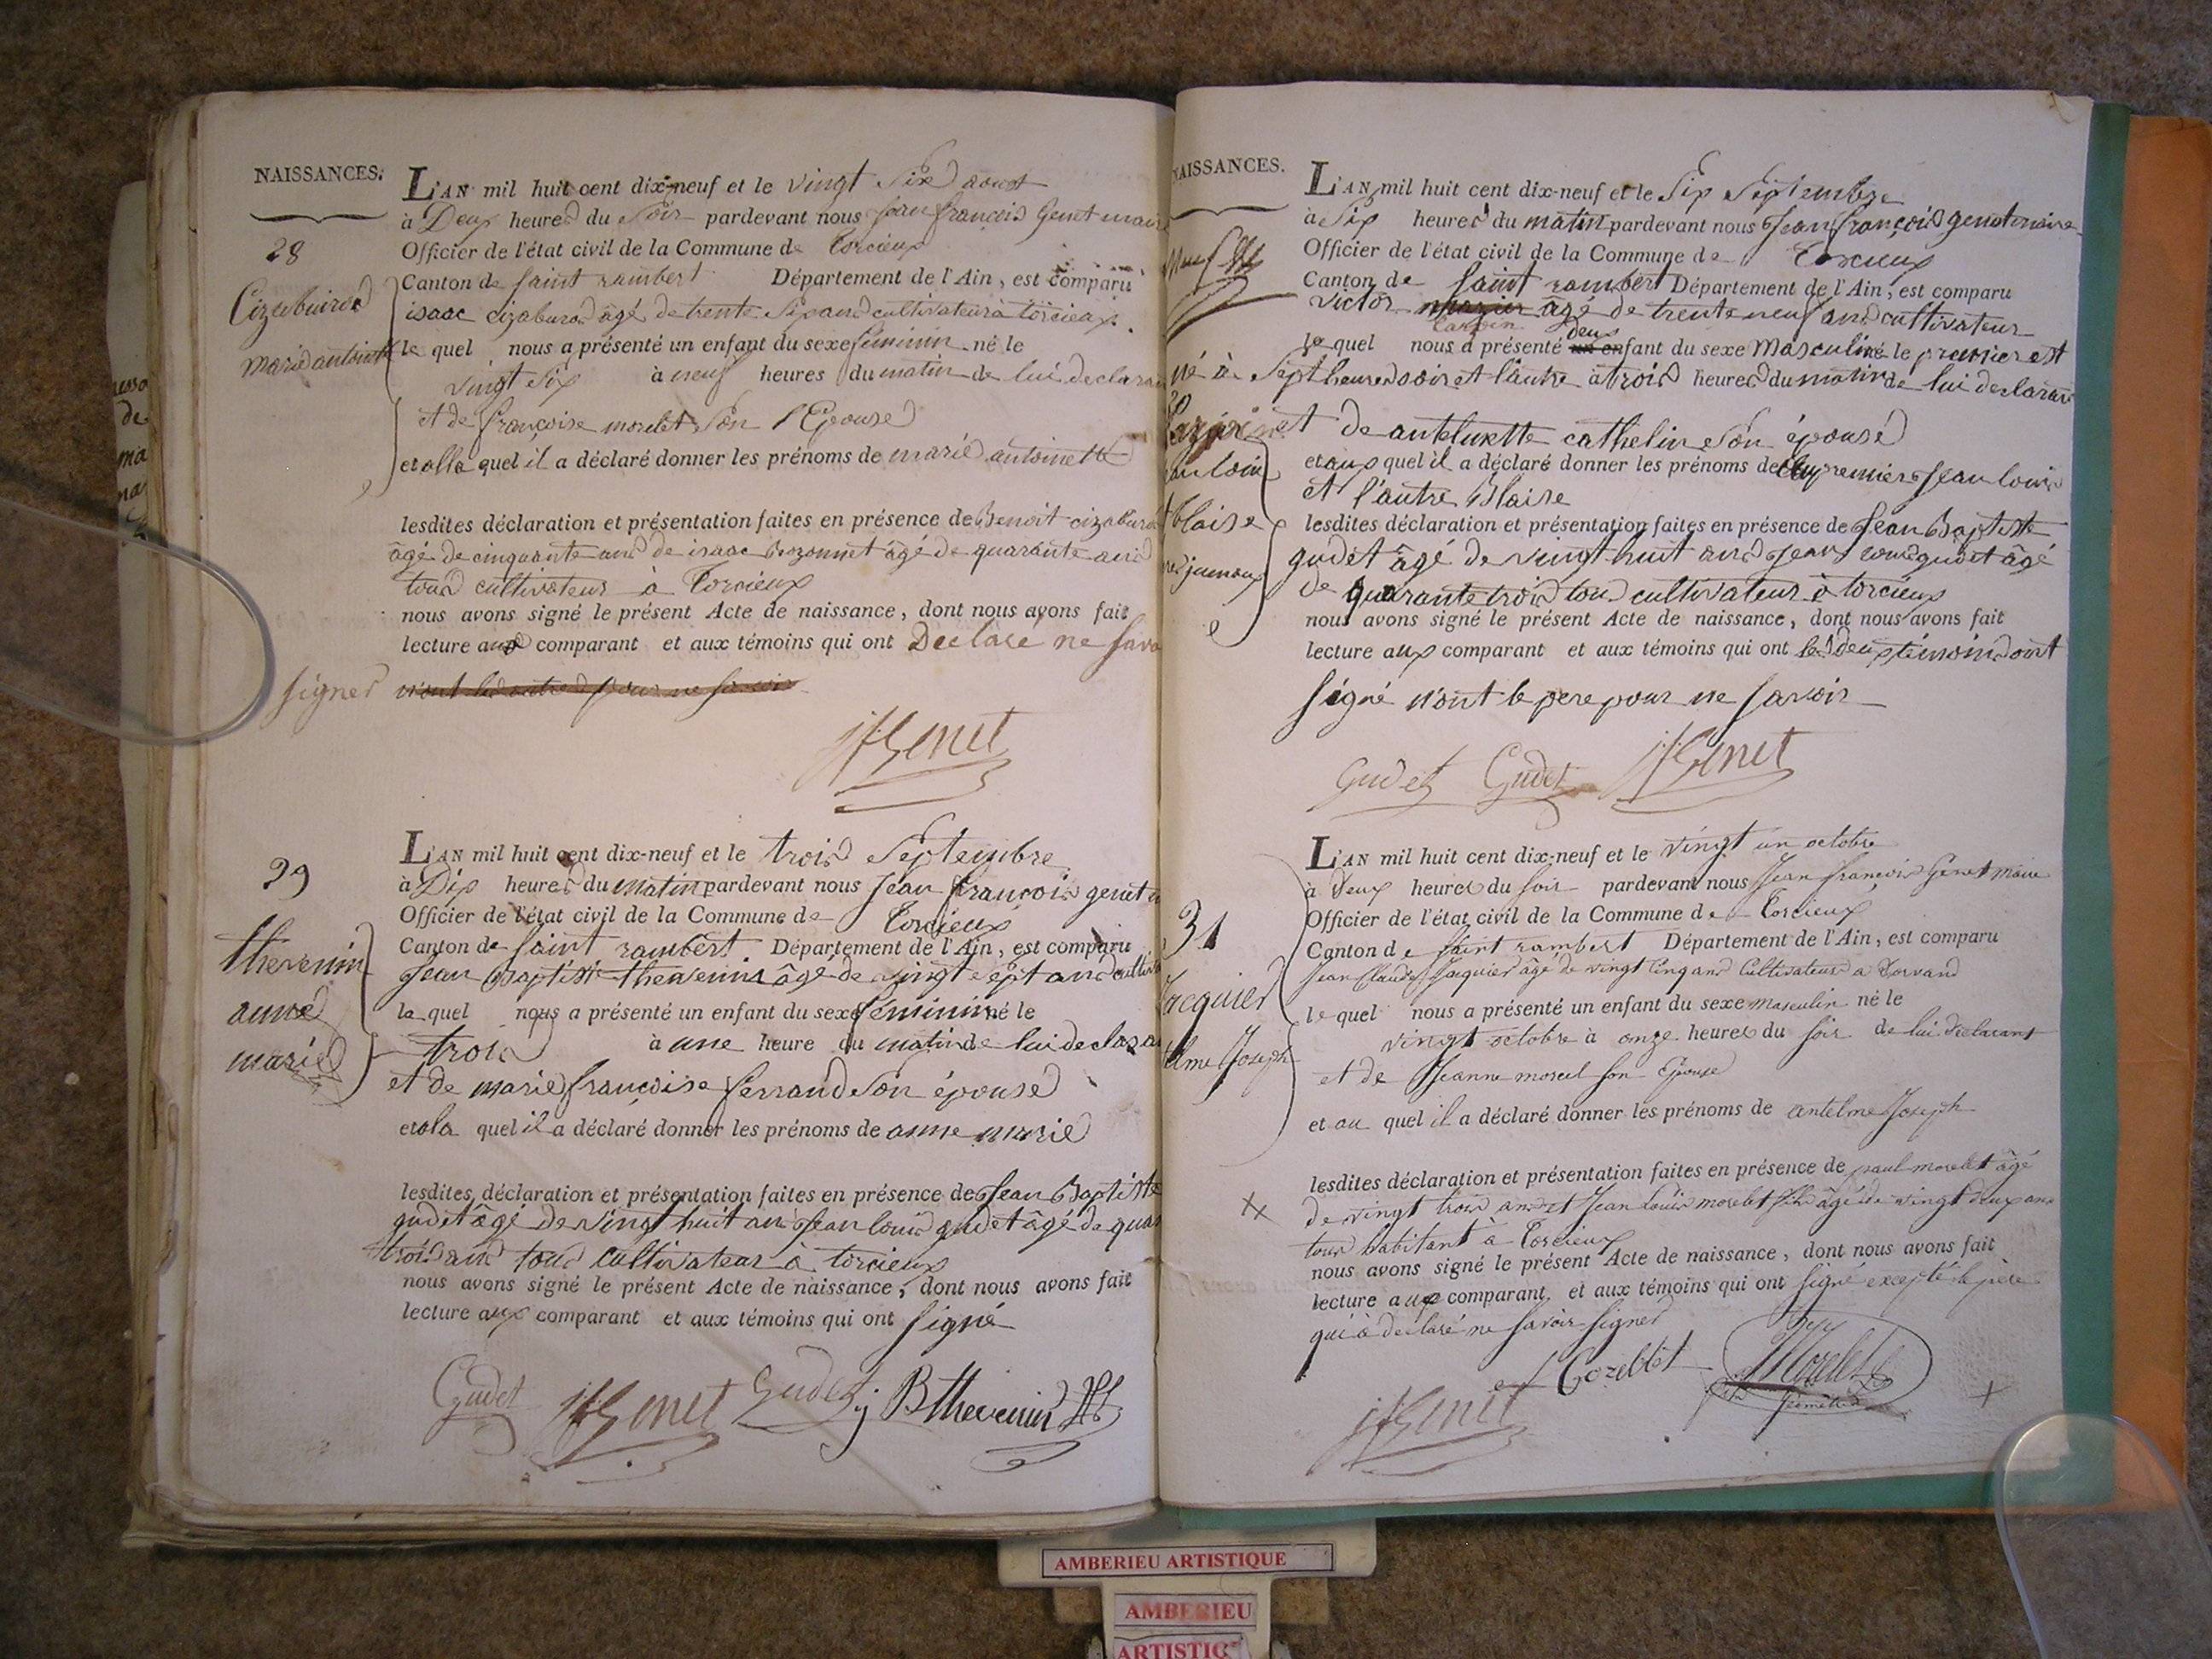 NAISSANCES.
28
Cizabuirod
marie antoinette
L'AN mil huit cent dix-neuf et le vingt Six aoust
à Deux heures du Soir pardevant nous jean françois Genet maire
Officier de l'état civil de la Commune de Torcieux
Canton de saint rambert Département de l'Ain, est comparu
isaac cizaburod âgé de trente Six ans cultivateur à torcieux.
le quel nous a présenté un enfant du sexe feminin né le
vingt six à neuf heures du matin de lui declarant
et de françoise morelet Son Epouse
et alla quel il a déclaré donner les prénoms de marie antoinette
lesdites déclaration et présentation faites en présence de Benoit cizaburod
âgé de cinquante ans de isaac Bozonnet âgé de quarante ans
tous cultivateur à Torcieux
nous avons signé le présent Acte de naissance, dont nous avons fait
lecture aux comparant et aux témoins qui ont Declaré ne savo
signer
jfGenet
29
thevenin
anne
marie
L'AN mil huit cent dix-neuf et le trois Septembre
à Dix heures du matin pardevant nous jean françois genet
Officier de l'état civil de la Commune de Torcieux
Canton de saint rambert Département de l'Ain, est comparu
jean Baptiste thevenin âgé de vingt sept ans cultiva
la quel nous a présenté un enfant du sexe féminin né le
trois à une heure du matin de lui declara
et de marie françoise ferrand Son épouse
et ala quel il a déclaré donner les prénoms de anne marie
lesdites déclaration et présentation faites en présence de jean Baptiste
gudet âgé de vingt huit ans jean louis gudet âgé de quar
trois ans tous cultivateur à torcieux
nous avons signé le présent Acte de naissance, dont nous avons fait
lecture aux comparant et aux témoins qui ont signé
Gudet jfGenet Gudet j B thevenin
NAISSANCES.
blaise
jumeaux
L'AN mil huit cent dix-neuf et le Six Septembre
à Six heures du matin pardevant nous jean françois genet maire
Officier de l'état civil de la Commune de Torcieux
Canton de saint rambert Département de l'Ain, est comparu
victor âgé de trente neuf ans cultivateur
deux
le quel nous a présenté un enfant du sexe masculin né le premier est
né à Sept heures soir et l'autre à trois heures du matin de lui declarant
et de antelmette cathelin Son épouse
et aux quel il a déclaré donner les prénoms de au premier jean louis
et l'autre Blaise
lesdites déclaration et présentation faites en présence de jean Baptiste
gudet âgé de vingt huit ans jean louis gudet âgé
de quarante trois tous cultivateur à torcieux
nous avons signé le présent Acte de naissance, dont nous avons fait
lecture aux comparant et aux témoins qui ont les deux témoins ont
signé n'ont le pere pour ne savoir
Gudet Gudet jfGenet
31
Jacquier
elme Joseph
L'AN mil huit cent dix-neuf et le vingt un octobre
à deux heures du soir pardevant nous Jean françois Genet maire
Officier de l'état civil de la Commune de Torcieux
Canton de saint rambert Département de l'Ain, est comparu
Jean Claude Jacquier âgé de vingt cinq ans Cultivateur a Dorvand
le quel nous a présenté un enfant du sexe masculin né le
vingt octobre à onze heures du soir de lui declarant
et de Jeanne morcel son Epouse
et au quel il a déclaré donner les prénoms de antelme Joseph
lesdites déclaration et présentation faites en présence de paul morelet âgé
de vingt trois ans et Jean Louis morelet âgé de vingt deux ans
tous habitant à Torcieux
nous avons signé le présent Acte de naissance, dont nous avons fait
lecture aux comparant, et aux témoins qui ont signé excepté le père
qui à déclaré ne savoir signer
Morelet
jfGenet
AMBERIEU ARTISTIQUE
AMBERIEU
ARTISTIQ